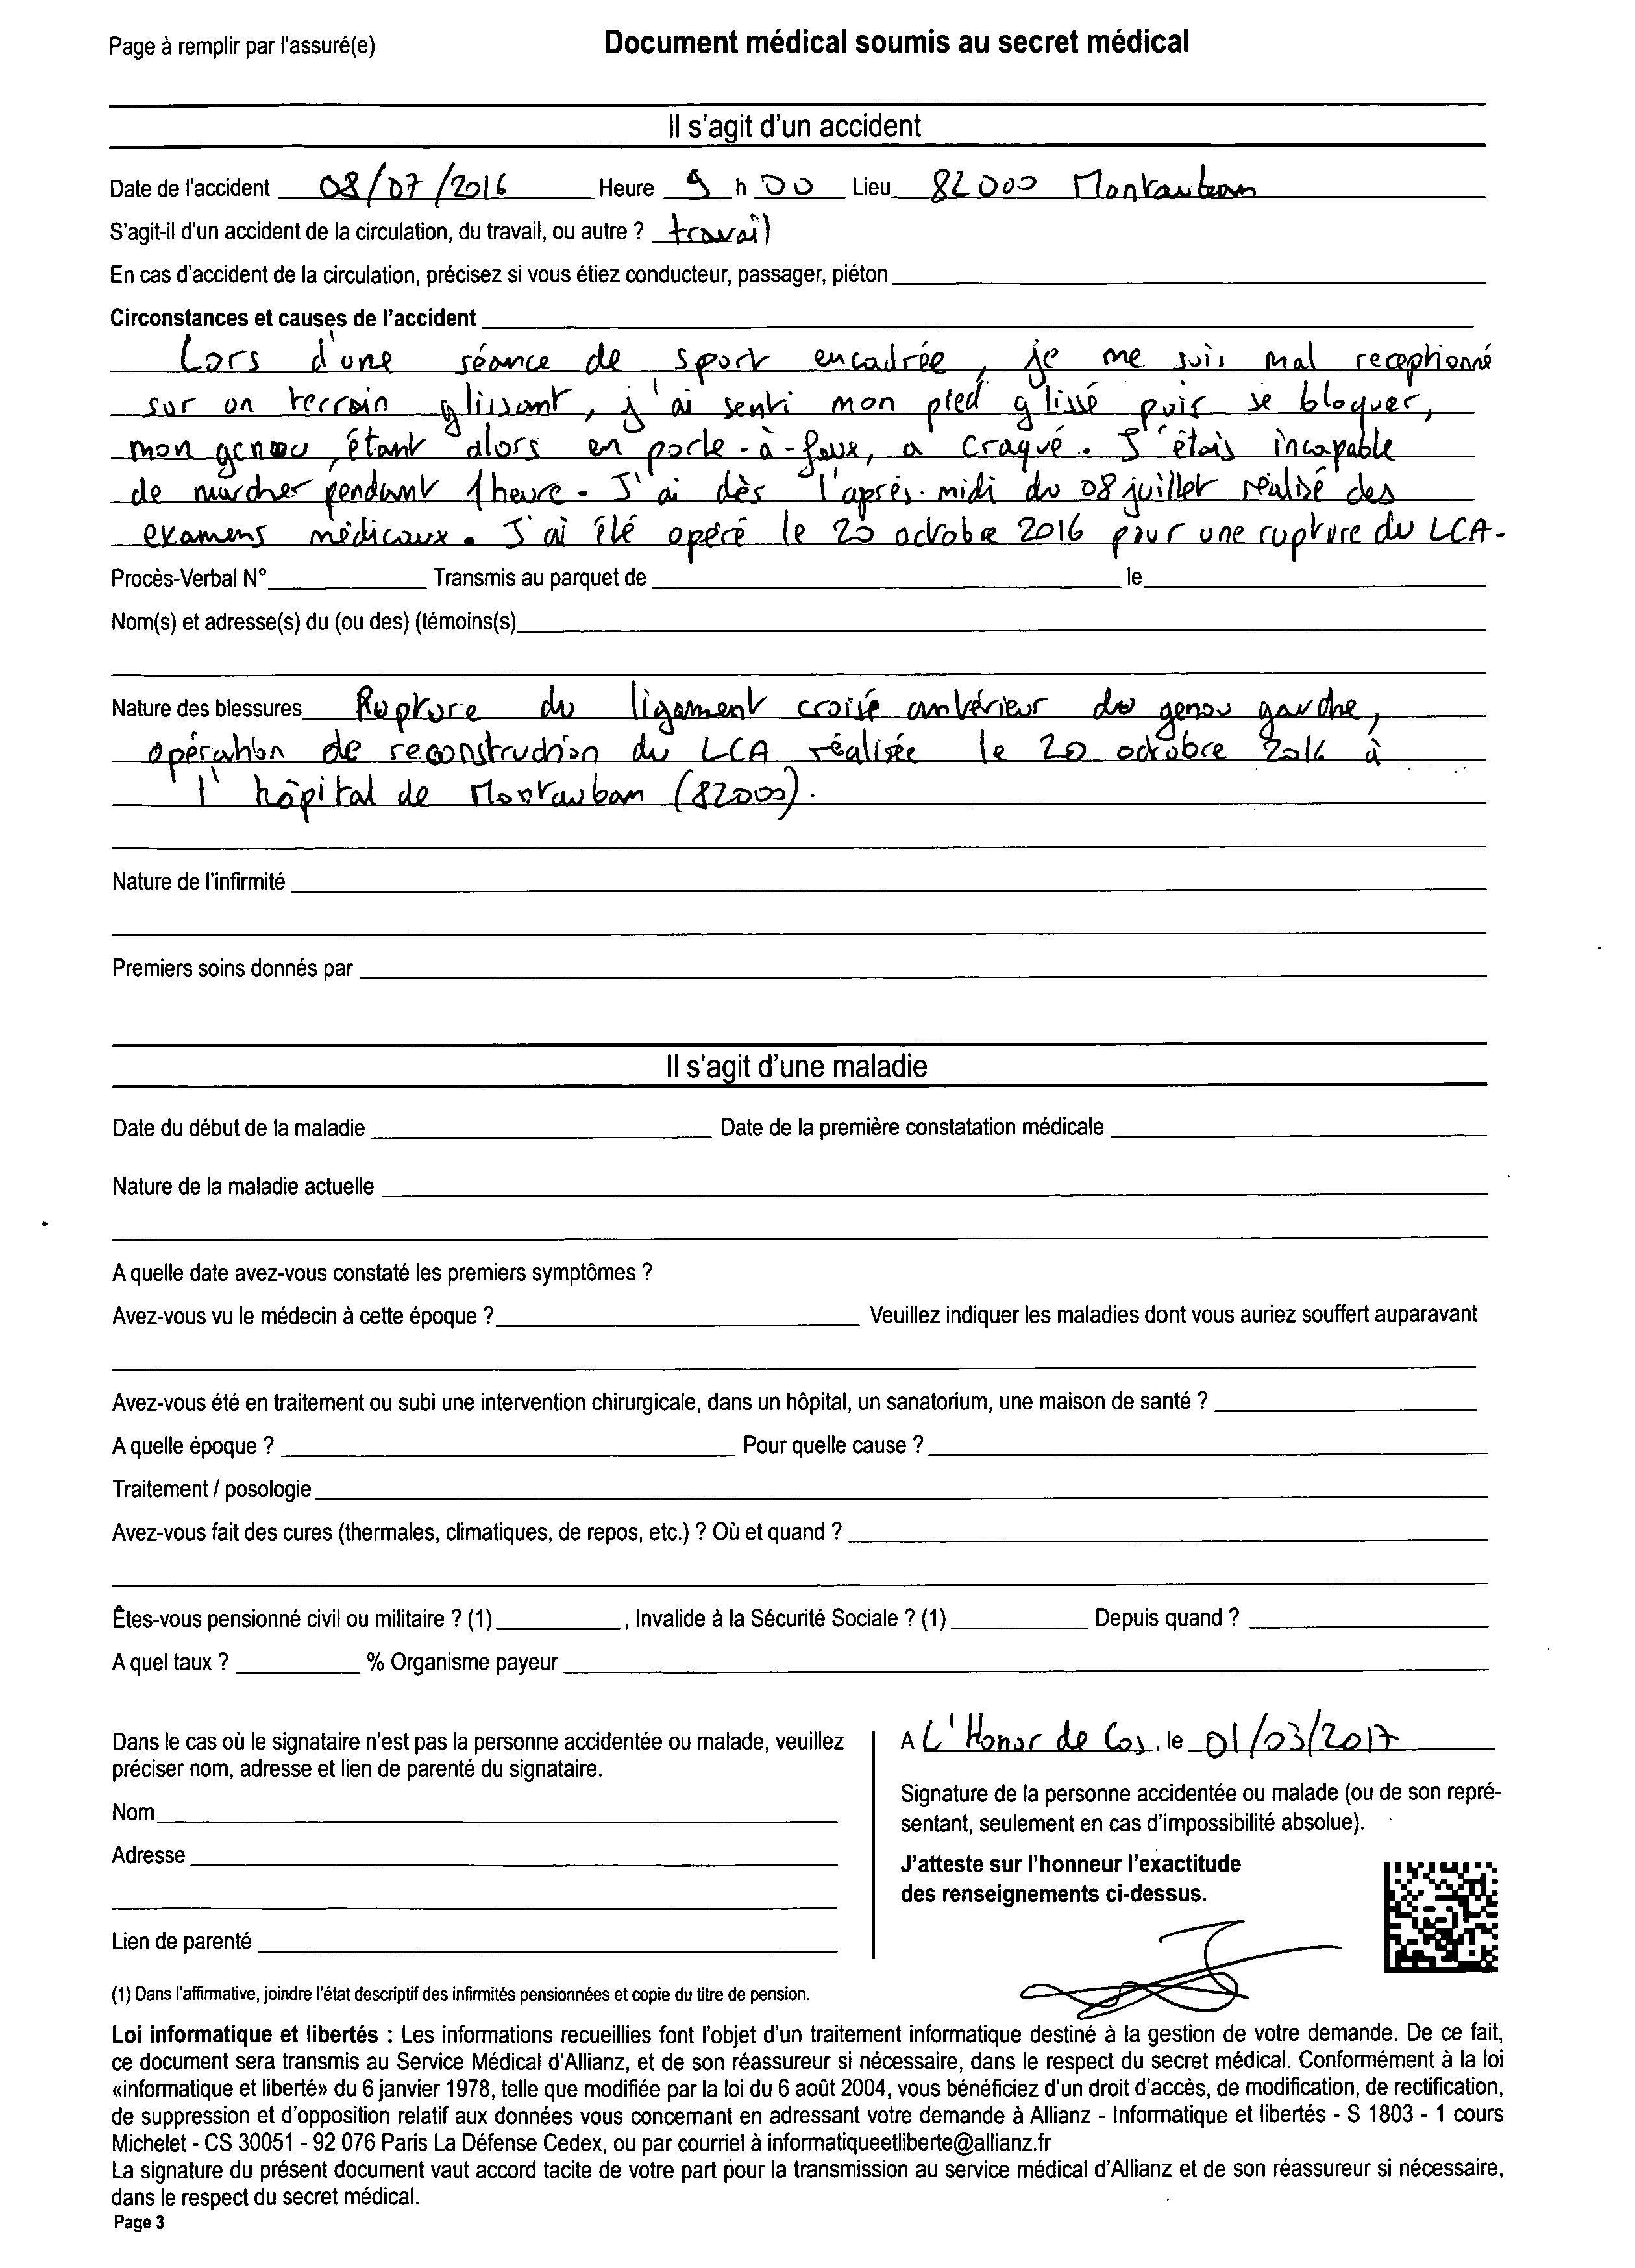 Page à remplir par l'assuré(e)
Document médical soumis au secret médical
Il s'agit d'un accident
Date de l'accident 08/07/2016 Heure 9 h 00 Lieu 82000 Montauban
S'agit-il d'un accident de la circulation, du travail, ou autre ? travail
En cas d'accident de la circulation, précisez si vous étiez conducteur, passager, piéton
Circonstances et causes de l'accident
Lors d'une séance de sport encadrée, je me suis mal receptionné
sur un terrain glissant, j'ai senti mon pied glissé puis se bloquer,
mon genou, étant alors en porte-à-faux, a craqué. J'étais incapable
de marcher pendant 1 heure. J'ai dès l'après-midi du 08 juillet réalisé des
examens médicaux. J'ai été opéré le 20 octobre 2016 pour une rupture du LCA.
Procès-Verbal N° Transmis au parquet de le
Nom(s) et adresse(s) du (ou des) (témoins(s)
Nature des blessures Rupture du ligament croisé antérieur du genou gauche,
opération de reconstruction du LCA réalisée le 20 octobre 2016 à
l'hôpital de Montauban (82000).
Nature de l'infirmité
Premiers soins donnés par
Il s'agit d'une maladie
Date du début de la maladie Date de la première constatation médicale
Nature de la maladie actuelle
A quelle date avez-vous constaté les premiers symptômes ?
Avez-vous vu le médecin à cette époque ? Veuillez indiquer les maladies dont vous auriez souffert auparavant
Avez-vous été en traitement ou subi une intervention chirurgicale, dans un hôpital, un sanatorium, une maison de santé ?
A quelle époque ? Pour quelle cause ?
Traitement / posologie
Avez-vous fait des cures (thermales, climatiques, de repos, etc.) ? Où et quand ?
Êtes-vous pensionné civil ou militaire ? (1) , Invalide à la Sécurité Sociale ? (1) Depuis quand ?
A quel taux ? % Organisme payeur
Dans le cas où le signataire n'est pas la personne accidentée ou malade, veuillez
préciser nom, adresse et lien de parenté du signataire.
Nom
Adresse
Lien de parenté
A L'Honor de Cos, le 01/03/2017
Signature de la personne accidentée ou malade (ou de son repré-
sentant, seulement en cas d'impossibilité absolue).
J'atteste sur l'honneur l'exactitude
des renseignements ci-dessus.
(1) Dans l'affirmative, joindre l'état descriptif des infirmités pensionnées et copie du titre de pension.
Loi informatique et libertés : Les informations recueillies font l'objet d'un traitement informatique destiné à la gestion de votre demande. De ce fait,
ce document sera transmis au Service Médical d'Allianz, et de son réassureur si nécessaire, dans le respect du secret médical. Conformément à la loi
«informatique et liberté» du 6 janvier 1978, telle que modifiée par la loi du 6 août 2004, vous bénéficiez d'un droit d'accès, de modification, de rectification,
de suppression et d'opposition relatif aux données vous concernant en adressant votre demande à Allianz - Informatique et libertés - S 1803 - 1 cours
Michelet - CS 30051 - 92 076 Paris La Défense Cedex, ou par courriel à informatiqueetliberte@allianz.fr
La signature du présent document vaut accord tacite de votre part pour la transmission au service médical d'Allianz et de son réassureur si nécessaire,
dans le respect du secret médical.
Page 3